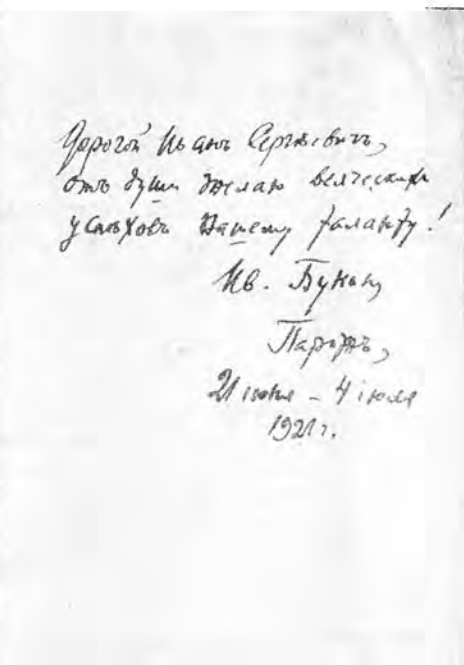 Дорогой Иванъ Сергѣевичъ,
отъ души желаю всяческихъ
успѣховъ Вашему таланту!
Ив. Бунин
Парижъ,
21 июня – 4 июля
1921 г.